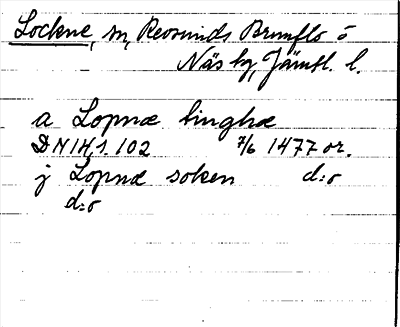 Lockne, sn, Revsunds Brunflo o
Näs tg, Jämtl. l.
a Lopnæ tinghæ
DN 14,1. 102 7/6 1477 or.
j Lopnæ soken d:o
d:o